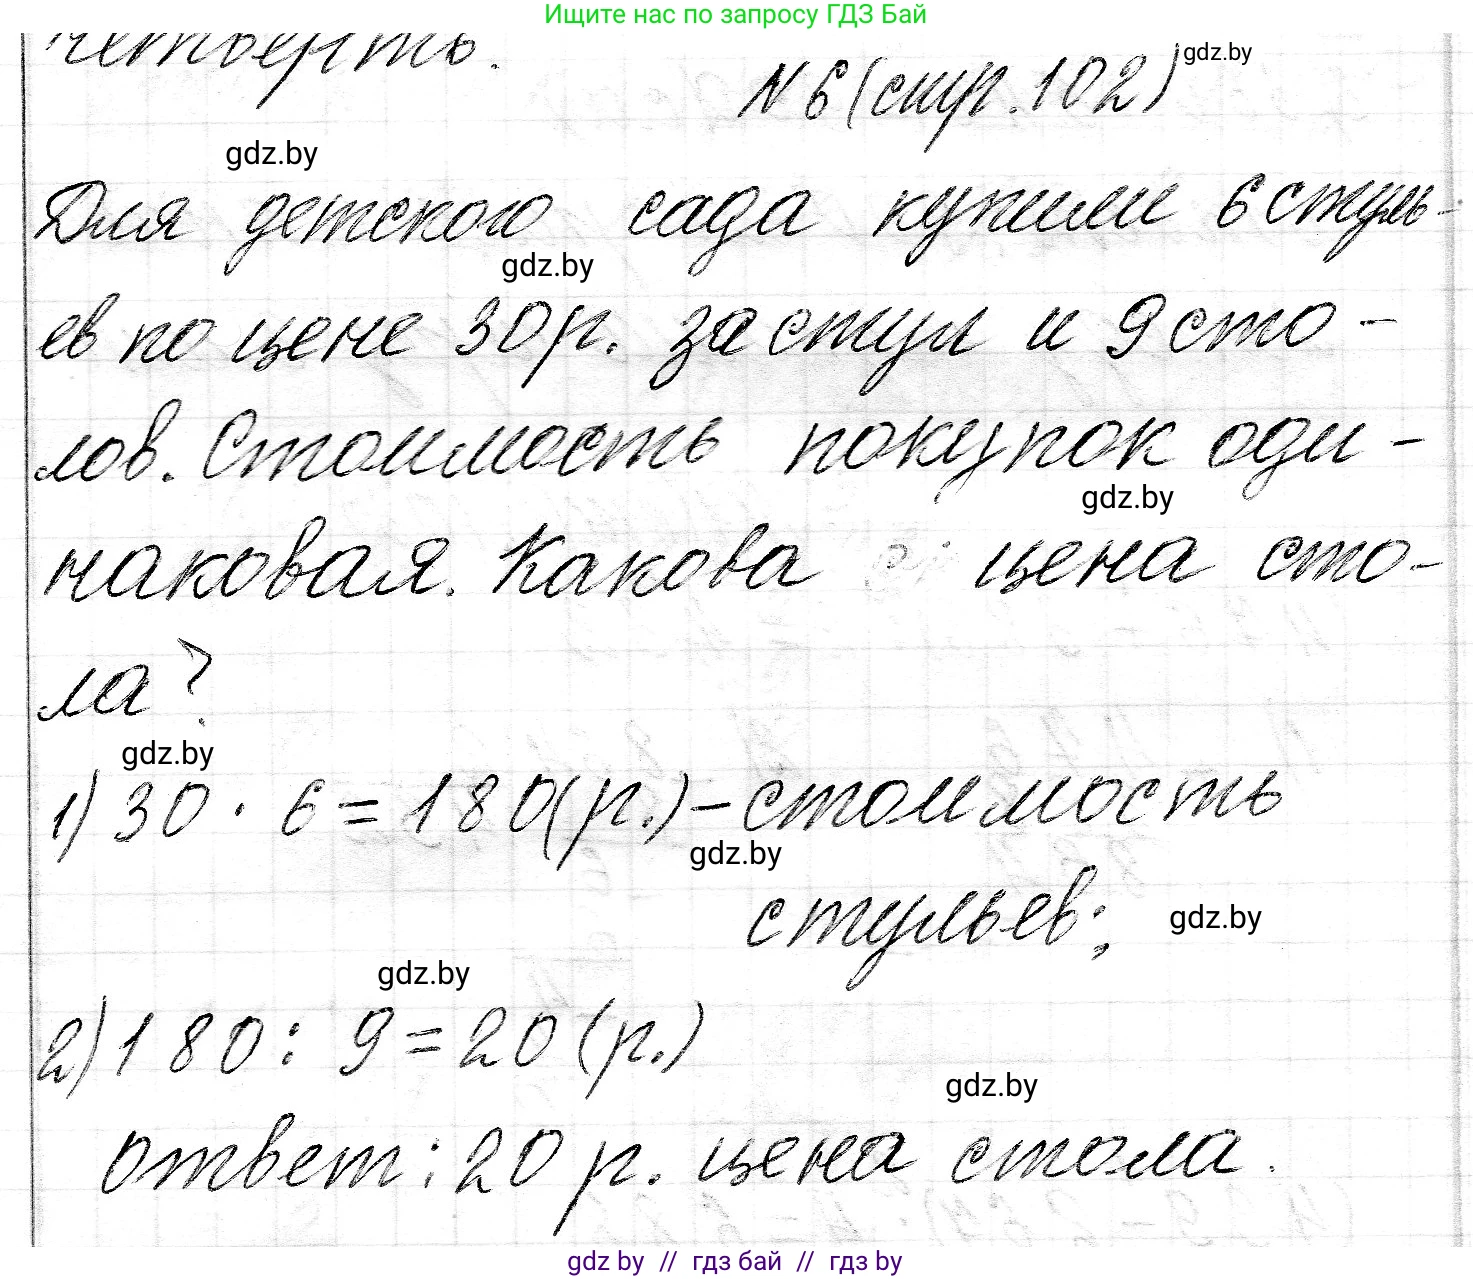 Ищите нас по запросу ГДЗ Бай
четверть.
N 6 (стр. 102)
gdz.by
gdz.by
Для детского сада купили 6 стуль-
gdz.by
ев по цене 30 р. за стул и 9 сто-
лов. Стоимость покупок оди-
gdz.by
наковая. Какова цена сто-
ла?
gdz.by
1) 30 · 6 = 180 (р.) - стоимость
gdz.by
стульев;
gdz.by
gdz.by
2) 180 : 9 = 20 (р.)
gdz.by
ответ: 20 р. цена стола.
gdz by // гдз бай // гдз by